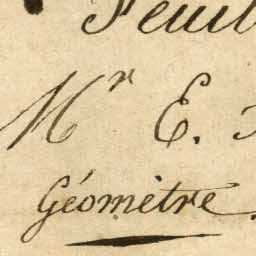 Feuil
Mr E.
Géomètre.